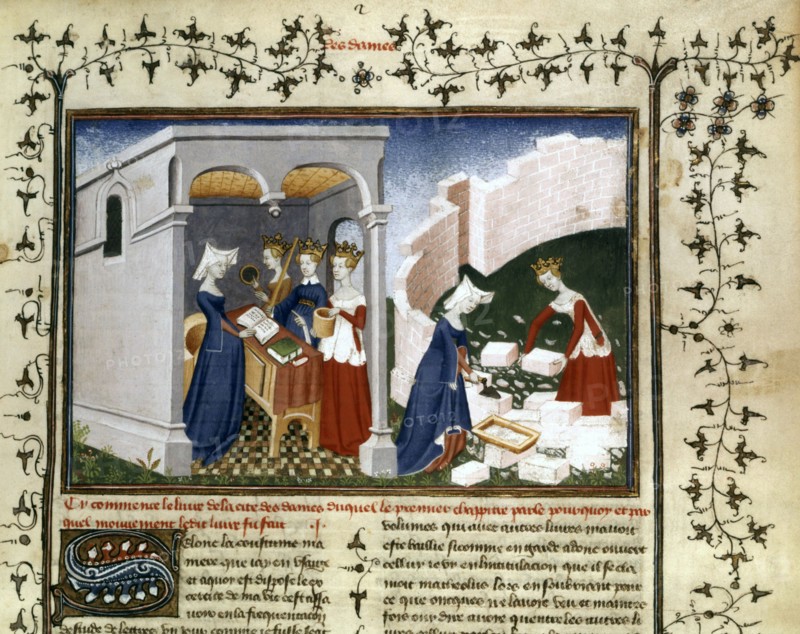 2
des dames
Cy commence le livre de la cite des dames duquel le premier chappitre parle pourquoy et par
quel mouvement ledit livre fu fait .j.
Selonc la coustume que
aquoy est dispose le
de ma vie cest assa
voir en la frequentacion
destude de lettres un jour comme je fusse
volumes qui avec autres livres mavoit
este baillie sicomme en garde adonc ouvert
cellui je vy en lintitulacion que il se cla
moit matheolus lors en soubriant pour
ce que oncques ne lavoie veu et maintes
fois ouy dire avoie quentre les autres
PHOTO12
PHOTO12
PHOTO12